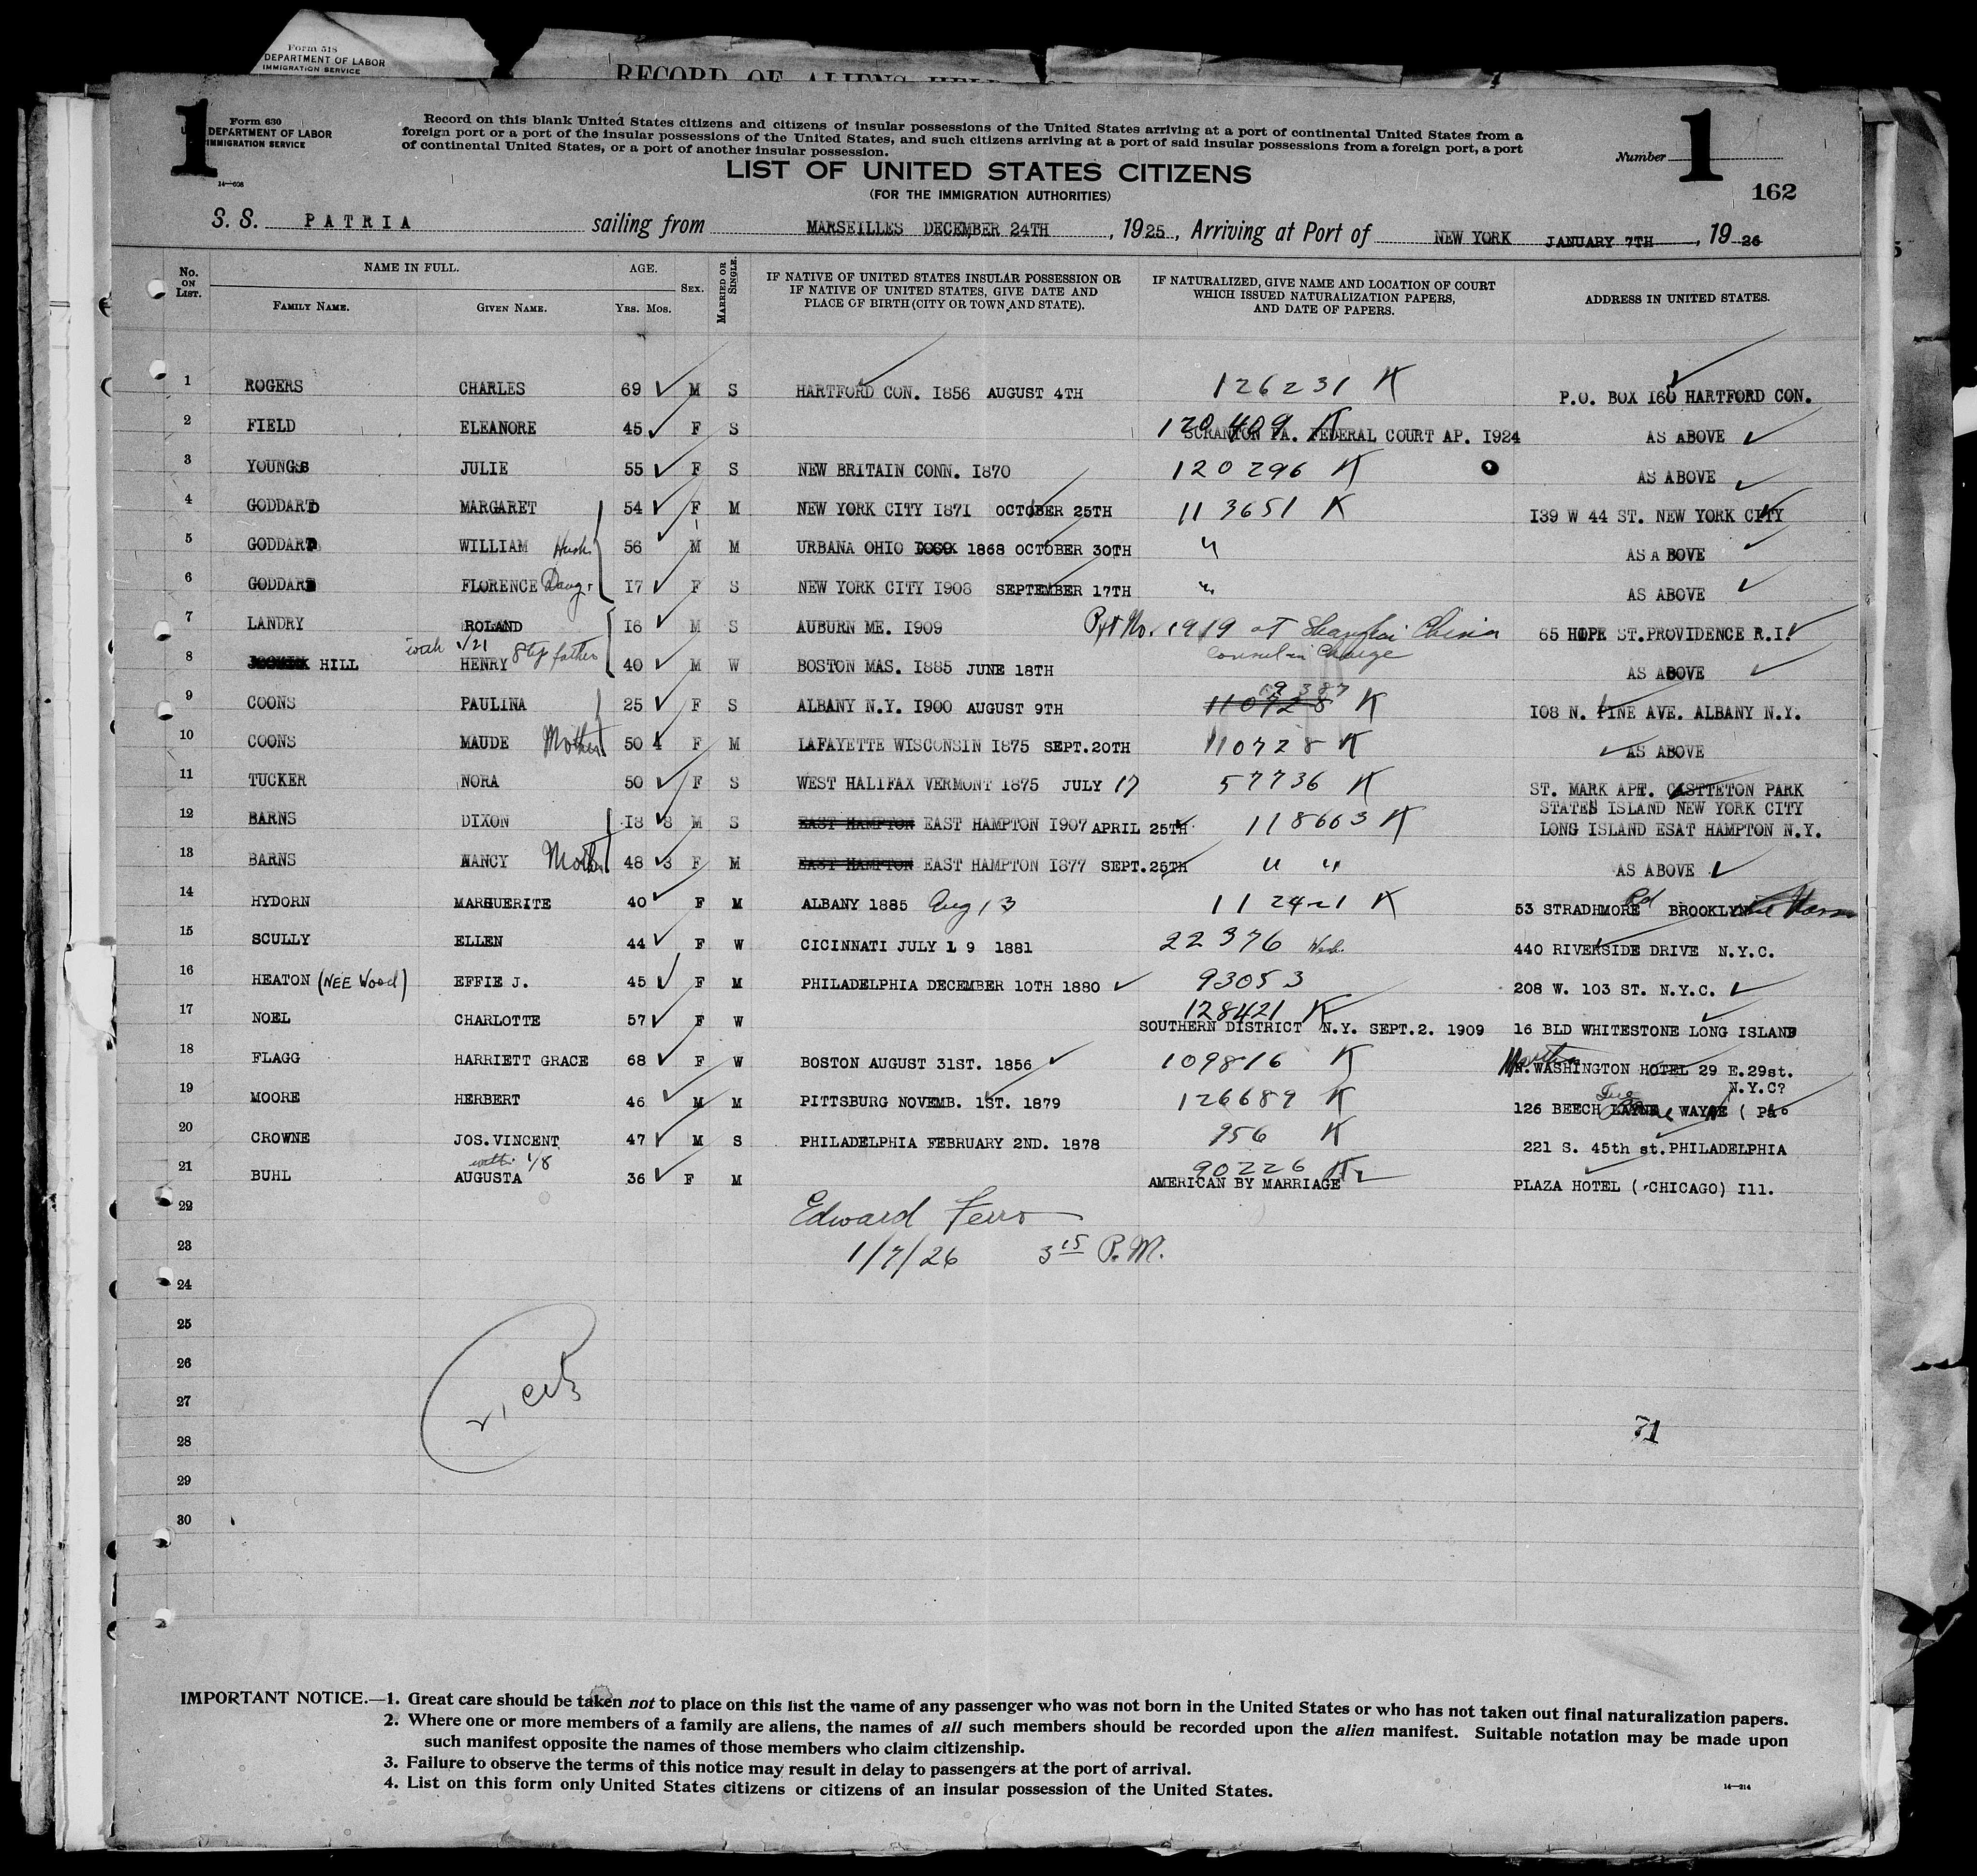 Form 518
DEPARTMENT OF LABOR
IMMIGRATION SERVICE
RECORD OF ALIENS HELD
1
Form 630
DEPARTMENT OF LABOR
IMMIGRATION SERVICE
14—608
Record on this blank United States citizens and citizens of insular possessions of the United States arriving at a port of continental United States from a
foreign port or a port of the insular possessions of the United States, and such citizens arriving at a port of said insular possessions from a foreign port, a port
of continental United States, or a port of another insular possession.
Number 1
162
LIST OF UNITED STATES CITIZENS
(FOR THE IMMIGRATION AUTHORITIES)
S. S. PATRIA sailing from MARSEILLES DECEMBER 24TH, 1925, Arriving at Port of NEW YORK JANUARY 7TH, 1926
No. ON LIST.
NAME IN FULL.
FAMILY NAME. GIVEN NAME.
AGE.
YRS. MOS.
SEX.
MARRIED OR SINGLE.
IF NATIVE OF UNITED STATES INSULAR POSSESSION OR
IF NATIVE OF UNITED STATES, GIVE DATE AND
PLACE OF BIRTH (CITY OR TOWN AND STATE).
IF NATURALIZED, GIVE NAME AND LOCATION OF COURT
WHICH ISSUED NATURALIZATION PAPERS,
AND DATE OF PAPERS.
ADDRESS IN UNITED STATES.
1 ROGERS CHARLES 69 M S HARTFORD CON. I856 AUGUST 4TH 126231 K P.O. BOX I60 HARTFORD CON.
2 FIELD ELEANORE 45 F S 120409 K SCRANTON PA. FEDERAL COURT AP. I924 AS ABOVE
3 YOUNGS JULIE 55 F S NEW BRITAIN CONN. I870 120296 K AS ABOVE
4 GODDARD MARGARET 54 F M NEW YORK CITY I871 OCTOBER 25TH 113651 K I39 W 44 ST. NEW YORK CITY
5 GODDARD WILLIAM Husb 56 M M URBANA OHIO 1868 OCTOBER 30TH " AS A BOVE
6 GODDARD FLORENCE Daugr I7 F S NEW YORK CITY I908 SEPTEMBER 17TH " AS ABOVE
7 LANDRY ROLAND I6 M S AUBURN ME. I909 Ppt No. 1919 at Shanghai China 65 HOPE ST.PROVIDENCE R.I.
with 1/21 Step father Consul in Charge
8 HILL HENRY 40 M W BOSTON MAS. I885 JUNE 18TH AS ABOVE
19387
9 COONS PAULINA 25 F S ALBANY N.Y. I900 AUGUST 9TH 110728 K I08 N. PINE AVE. ALBANY N.Y.
10 COONS MAUDE Mother 50 4 F M LAFAYETTE WISCONSIN I875 SEPT.20TH 110728 K AS ABOVE
11 TUCKER NORA 50 F S WEST HALIFAX VERMONT I875 JULY 17 57736 K ST. MARK APT. CASTTETON PARK
STATEN ISLAND NEW YORK CITY
12 BARNS DIXON I8 8 M S EAST HAMPTON EAST HAMPTON I907 APRIL 25TH 118663 K LONG ISLAND ESAT HAMPTON N.Y.
13 BARNS NANCY Mother 48 3 F M EAST HAMPTON EAST HAMPTON I877 SEPT.25TH " " AS ABOVE
14 HYDORN MARGUERITE 40 F M ALBANY 1885 Aug 13 112421 K 53 STRADHMORE Rd BROOKLYN
15 SCULLY ELLEN 44 F W CICINNATI JULY 1 9 1881 22376 Wash. 440 RIVERSIDE DRIVE N.Y.C.
16 HEATON (NEE Wood) EFFIE J. 45 F M PHILADELPHIA DECEMBER 10TH 1880 93053 208 W. 103 ST. N.Y.C.
128421 K
17 NOEL CHARLOTTE 57 F W SOUTHERN DISTRICT N.Y. SEPT.2. 1909 16 BLD WHITESTONE LONG ISLAND
18 FLAGG HARRIETT GRACE 68 F W BOSTON AUGUST 31ST. 1856 109816 K Martha WASHINGTON HOTEL 29 E.29st.
N.Y.C?
19 MOORE HERBERT 46 M M PITTSBURG NOVEMB. 1ST. 1879 126689 K 126 BEECH WAYNE ( Pa.
20 CROWNE JOS.VINCENT 47 M S PHILADELPHIA FEBRUARY 2ND. 1878 956 K 221 S. 45th st. PHILADELPHIA
with 1/8
90226 K
21 BUHL AUGUSTA 36 F M AMERICAN BY MARRIAGE PLAZA HOTEL ( CHICAGO) Ill.
22 Edward Ferro
23 1/7/26 3 15 P.M.
24
25
26
27
28 71
29
30
IMPORTANT NOTICE.—1. Great care should be taken not to place on this list the name of any passenger who was not born in the United States or who has not taken out final naturalization papers.
2. Where one or more members of a family are aliens, the names of all such members should be recorded upon the alien manifest. Suitable notation may be made upon
such manifest opposite the names of those members who claim citizenship.
3. Failure to observe the terms of this notice may result in delay to passengers at the port of arrival.
4. List on this form only United States citizens or citizens of an insular possession of the United States.
14—214